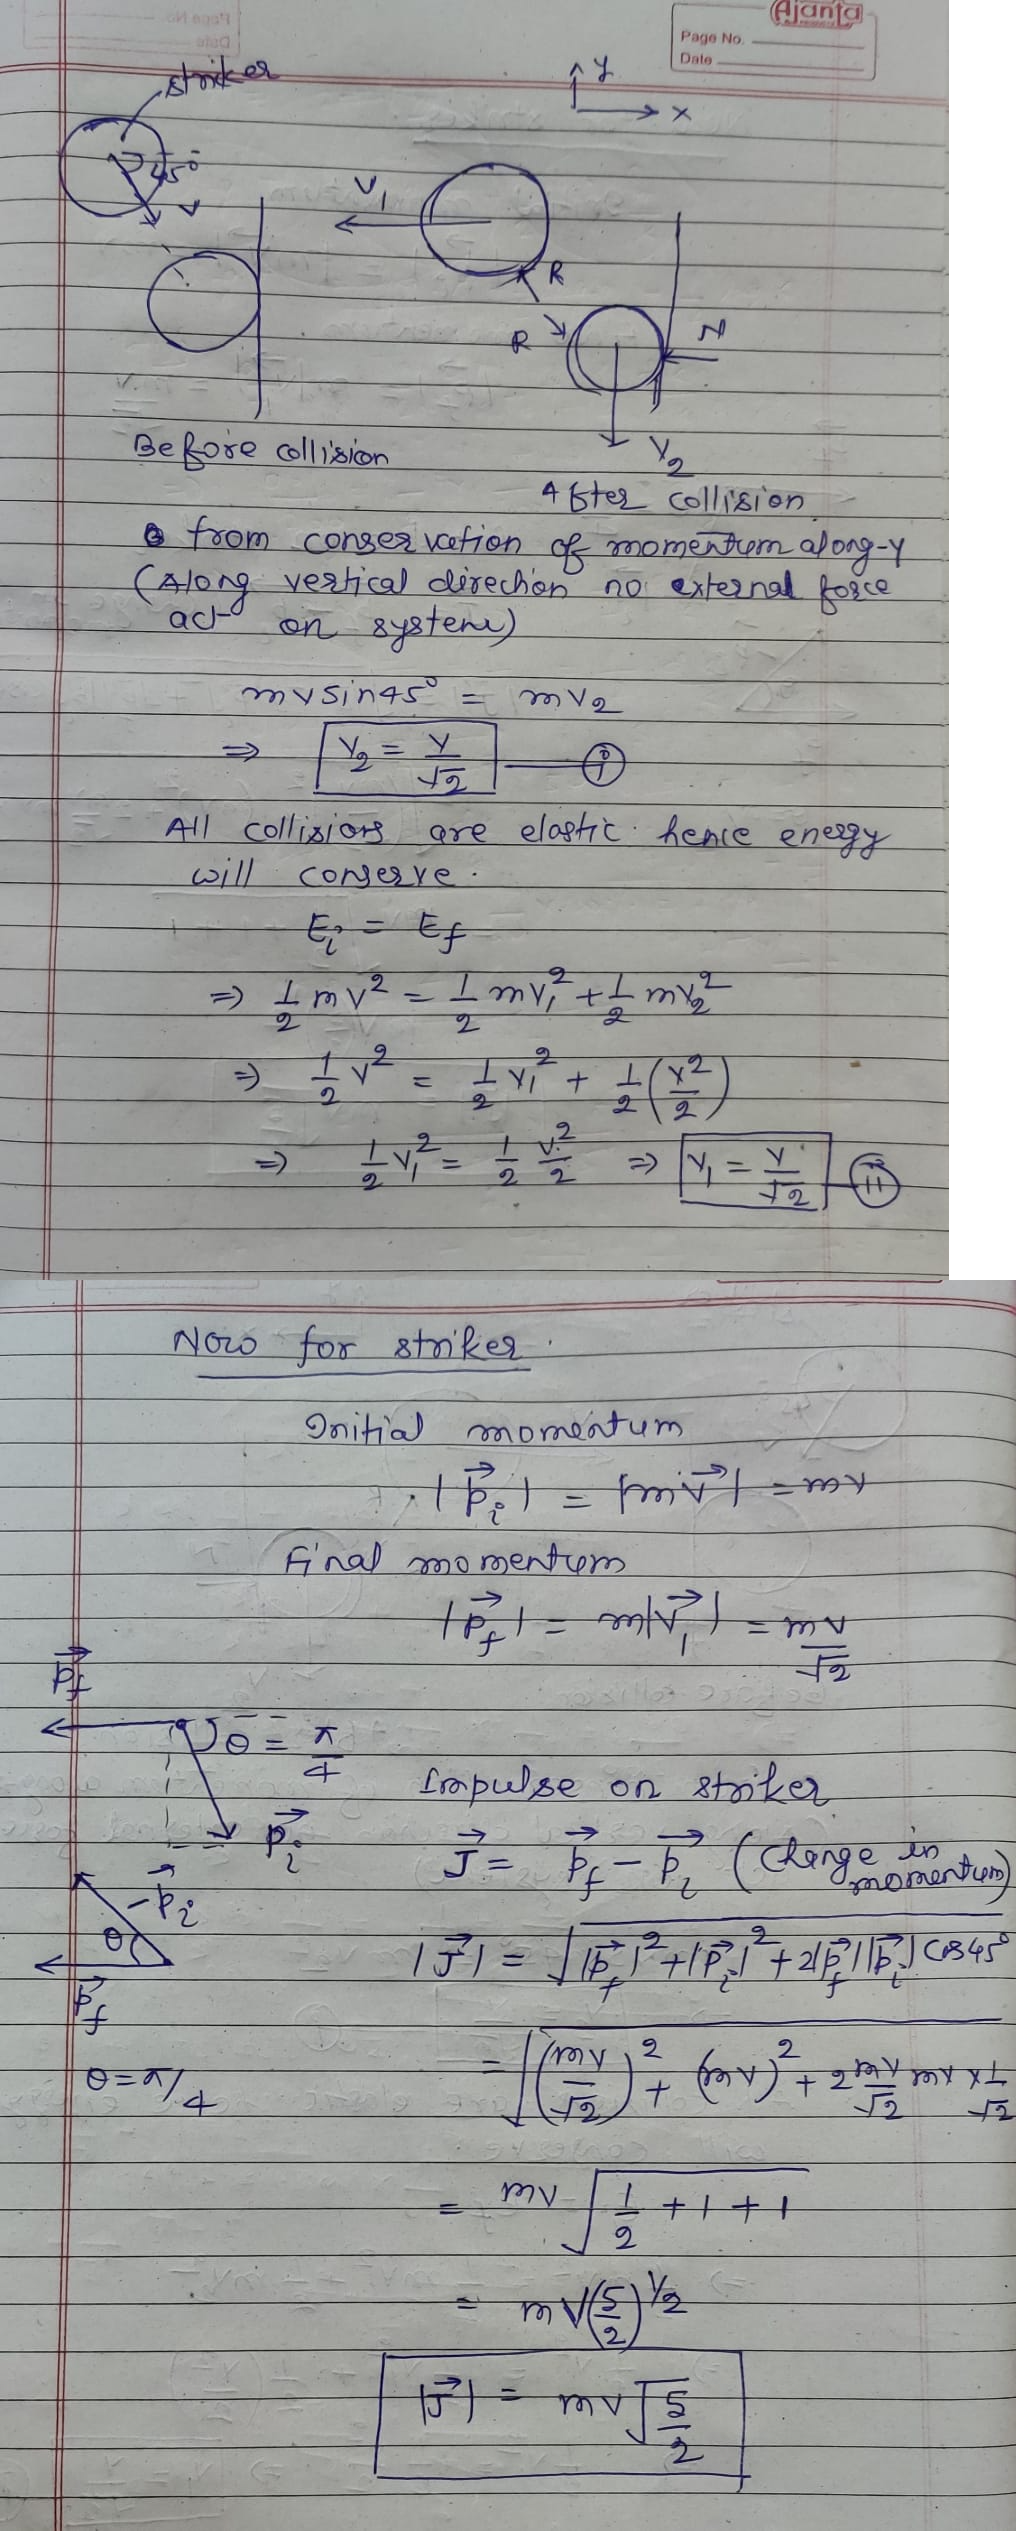 Ajanta
Page No.
Date
striker
y
x
45°
v
V₁
R
R
N
V₂
Before collision
After collision
from conservation of momentum along-y
(Along vertical direction no external force
act on system)
mv sin45° = mv₂
⇒ V₂ = V/√2 — (i)
All collisions are elastic. hence energy
will conserve.
Eᵢ = E_f
⇒ 1/2 mv² = 1/2 mv₁² + 1/2 mv₂²
⇒ 1/2 v² = 1/2 v₁² + 1/2 (v²/2)
⇒ 1/2 v₁² = 1/2 v²/2 ⇒ V₁ = V/√2 — (ii)
Now for striker.
Initial momentum
|p⃗ᵢ| = |mv⃗| = mv
Final momentum
|p⃗_f| = m|v⃗₁| = mv/√2
p⃗_f
θ = π/4
p⃗ᵢ
Impulse on striker
J⃗ = p⃗_f − p⃗ᵢ (change in momentum)
−p⃗ᵢ
θ
p⃗_f
|J⃗| = √(|p⃗_f|² + |p⃗ᵢ|² + 2|p⃗_f||p⃗ᵢ| cos45°)
θ = π/4
= √((mv/√2)² + (mv)² + 2 mv/√2 mv × 1/√2)
= mv √(1/2 + 1 + 1)
= mv(5/2)^1/2
|J⃗| = mv√(5/2)